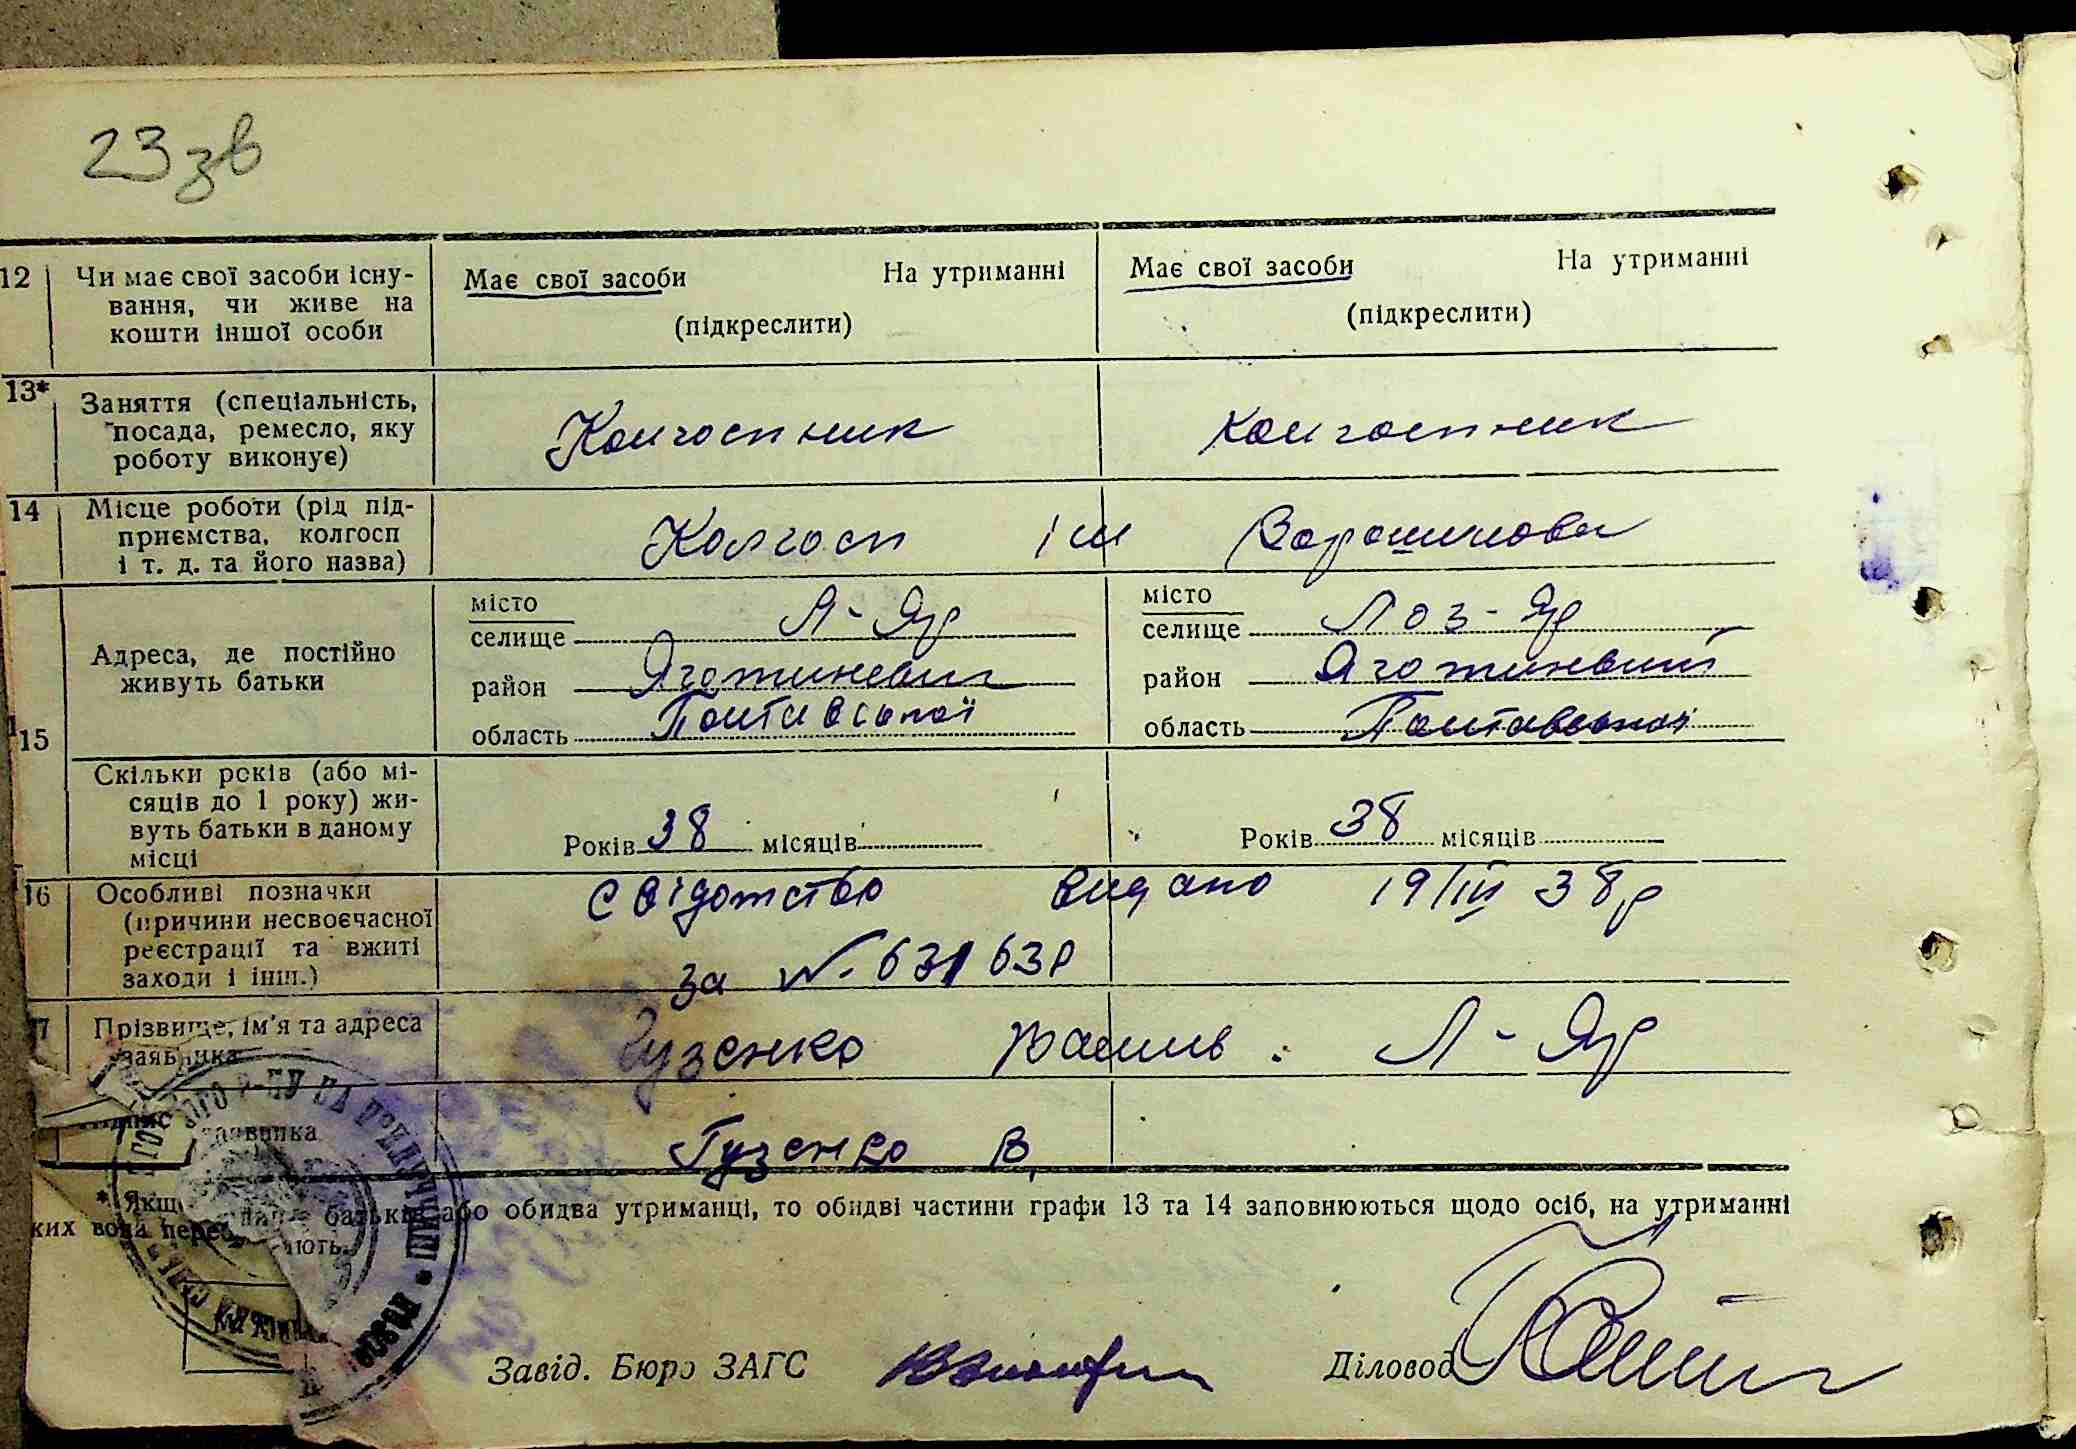 23 зв
12 Чи має свої засоби існу- Має свої засоби На утриманні Має свої засоби На утриманні
вання, чи живе на
кошти іншої особи (підкреслити) (підкреслити)
13* Заняття (спеціальність,
посада, ремесло, яку Колгоспник Колгоспник
роботу виконує)
14 Місце роботи (рід під-
приємства, колгосп Колгосп ім Ворошилова
і т. д. та його назва)
15 Адреса, де постійно
живуть батьки
місто
селище Л-Яр
район Яготинський
область Полтавської
місто
селище Лоз-Яр
район Яготинський
область Полтавської
Скільки років (або мі-
сяців до 1 року) жи-
вуть батьки в даному
місці
Років 38 місяців Років 38 місяців
16 Особливі позначки Свідотство видано 19/III 38р
(причини несвоєчасної
реєстрації та вжиті за №
заходи і інш.)
17 Прізвище, ім'я та адреса Гузенко Л-Яр
заявника
Підпис
заявника Гузенко В,
* Якщо батьків або обидва утриманці, то обидві частини графи 13 та 14 заповнюються щодо осіб, на утриманні
ких вона перебувають.
Завід. Бюро ЗАГС Діловод